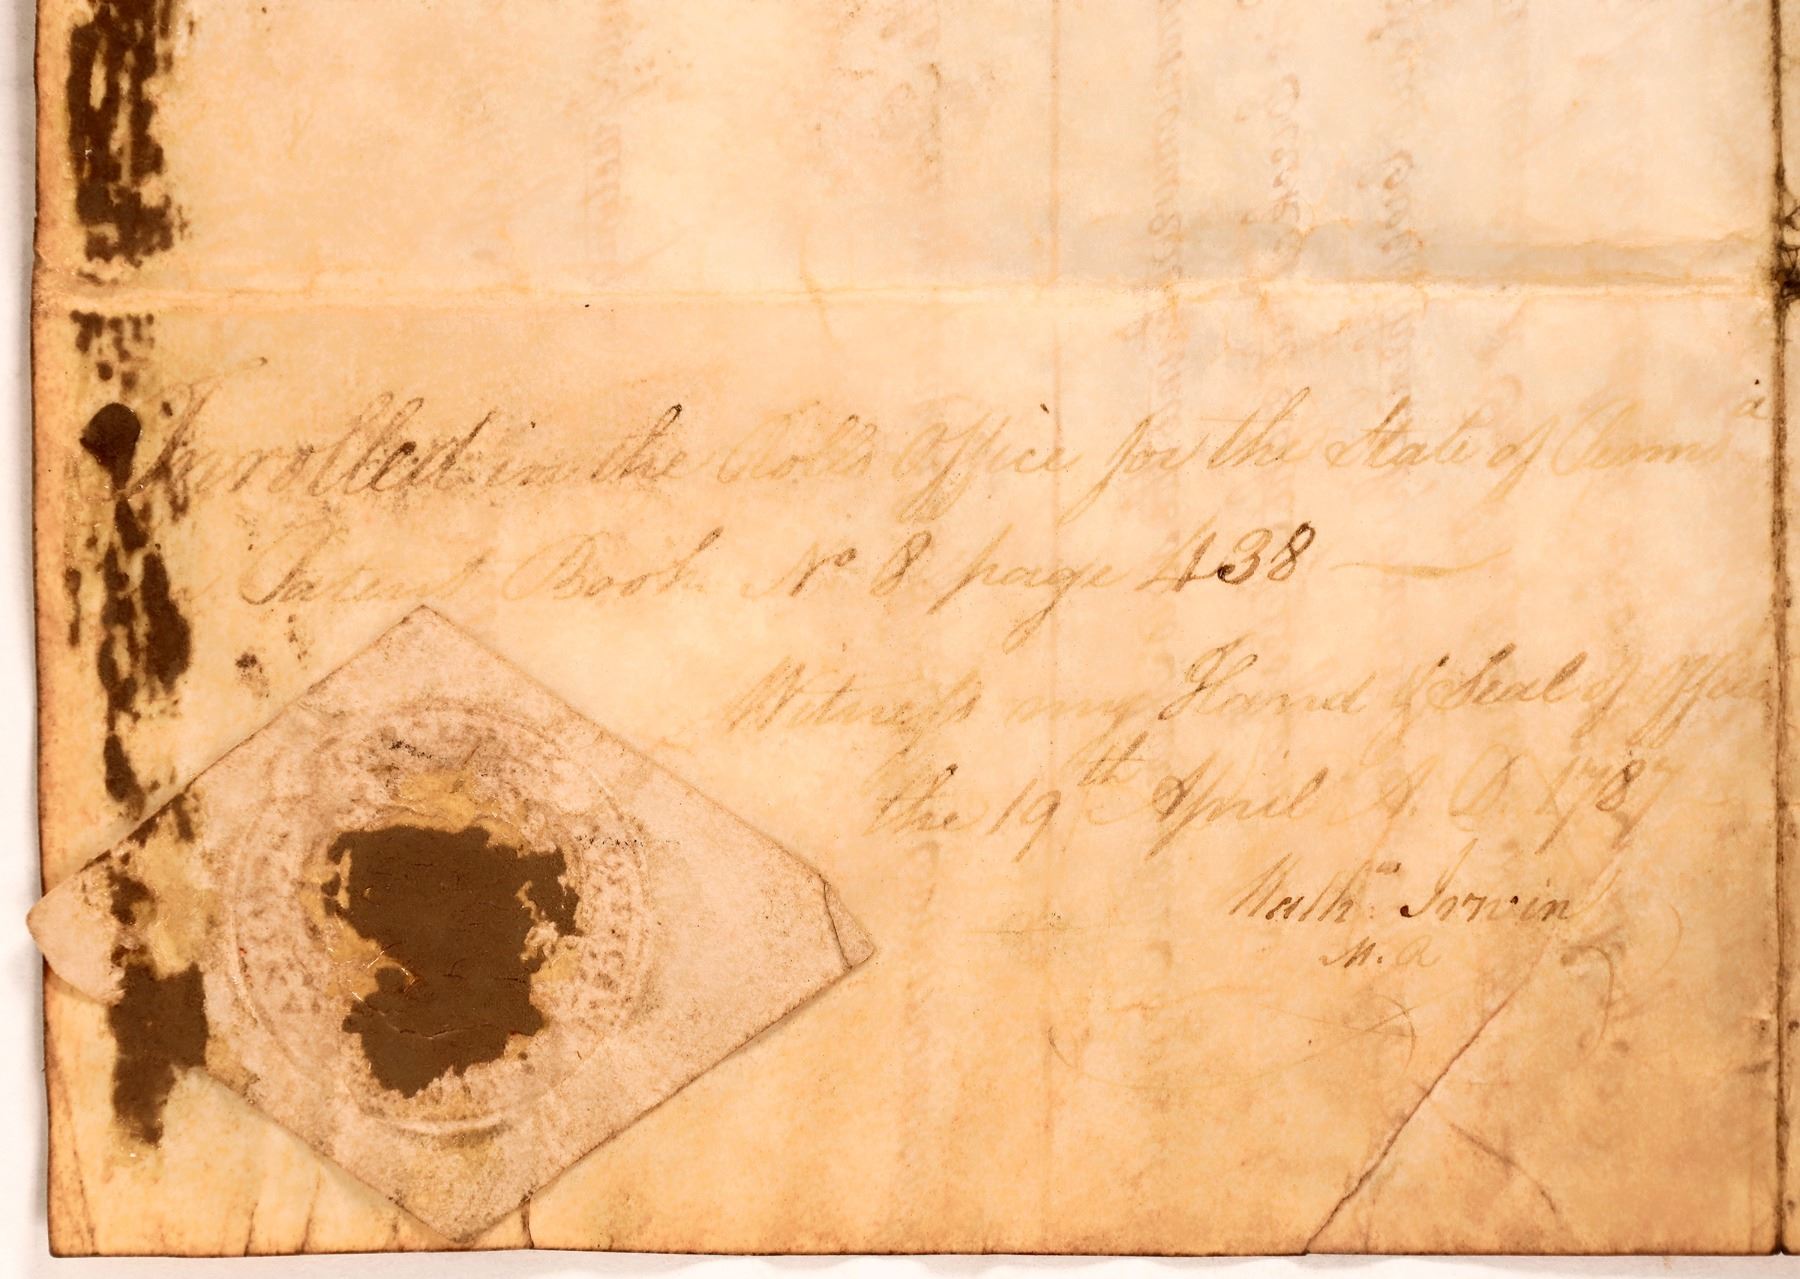 Inrolled in the Rolls Office for the State of Pennsa
in Patent Book No 8 page 438 —
Witness my Hand & Seal of Office
the 19th April A. D. 1787
Mathw Irwin
M. R